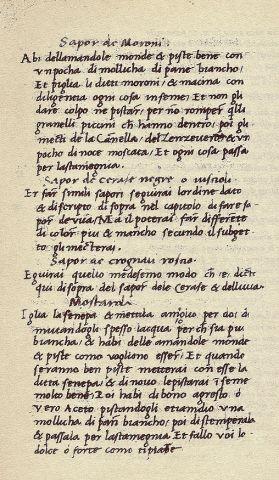 Sapor de Moroni.
Abi dellamandole monde & piste bene con
un pocha di mollicha di pane biancho,
Et piglia li ditti moroni, & macina con
diligentia ogni cosa inseme, Et non gli
dare colpo ne pistar, per no romper qlli
granelli piccini ch hanno dentro, poi gli
metti de la Canella, del Zenzevero & un
pocho di noce moscata, Et ogni cosa passa
per lastamegnia.
Sapor de cerase negre o visnole.
Et far simili sapori seguirai lordine dato
& discripto di sopra nel capitulo di fare sa-
por de uva, Ma il poterai far differete
di color piu & mancho secundo il subget-
to gli metterai.
Sapor de crognali rosso.
Eguirai quello medesimo modo ch e ditti
qui di sopra del sapor dele Cerase & dell uva.
Mostarda
Iglia la senepa & mettila amollo per doi di
mutandogli spesso lacqua, per ch sia piu
biancha, & habi delle amandole monde
& piste como vogliono esser, Et quando
seranno ben piste metterai con esse la
ditta senepa, & di novo le pistarai inseme
molto bene, Poi habi di bono agresto o
vero Aceto pistandogli etiamdio una
mollicha di pan biancho, poi distemperala
& passala per lastamegnia, Et fallo voi lo
dolce o forte como ti piace